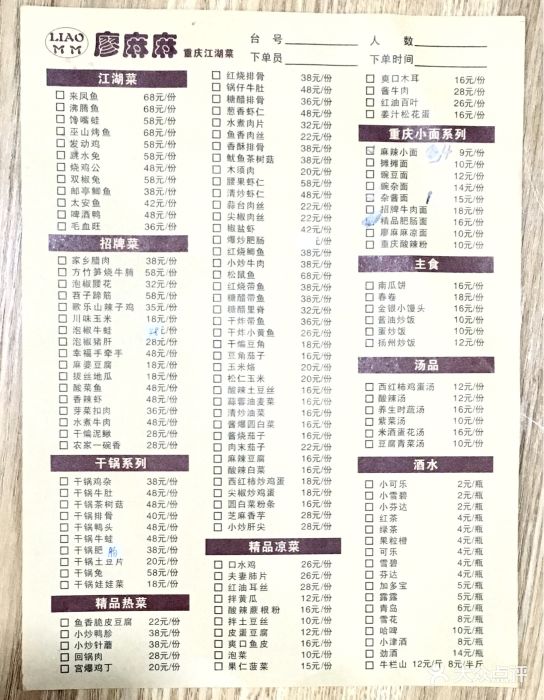 LIAO
M M
廖麻麻 重庆江湖菜
台 号
人 数
下单员
下单时间
江湖菜
来凤鱼 68元/份
沸腾鱼 68元/份
馋嘴蛙 58元/份
巫山烤鱼 68元/份
发动鸡 58元/份
跳水兔 58元/份
烧鸡公 48元/份
双椒兔 58元/份
邮亭鲫鱼 38元/份
太安鱼 42元/份
啤酒鸭 48元/份
毛血旺 36元/份
招牌菜
家乡腊肉 38元/份
方竹笋烧牛腩 58元/份
泡椒腰花 32元/份
酉子蹄筋 58元/份
歌乐山辣子鸡 35元/份
川味玉米 18元/份
泡椒牛蛙 元/份
泡椒猪肝 28元/份
幸福手牵手 48元/份
麻婆豆腐 18元/份
拔丝地瓜 18元/份
酸菜鱼 48元/份
香辣虾 48元/份
芽菜扣肉 36元/份
水煮牛肉 48元/份
干煸泥鳅 28元/份
农家一碗香 28元/份
干锅系列
干锅鸡杂 38元/份
干锅牛肚 48元/份
干锅茶树菇 48元/份
干锅排骨 40元/份
干锅鸭头 48元/份
干锅牛蛙 48元/份
干锅肥肠 38元/份
干锅土豆片 20元/份
干锅兔 58元/份
干锅娃娃菜 18元/份
精品热菜
鱼香脆皮豆腐 22元/份
小炒鸭胗 38元/份
小炒针蘑 38元/份
回锅肉 28元/份
宫爆鸡丁 20元/份
红烧排骨 38元/份
锅仔牛肚 48元/份
糖醋排骨 36元/份
葱香虾仁 48元/份
水煮肉片 32元/份
鱼香肉丝 22元/份
香酥排骨 38元/份
鱿鱼茶树菇 38元/份
木须肉 20元/份
腰果虾仁 58元/份
清炒虾仁 48元/份
蒜台肉丝 22元/份
尖椒肉丝 22元/份
椒盐虾 42元/份
爆炒肥肠 元/份
红烧鲫鱼 38元/份
小炒牛肉 38元/份
松鼠鱼 68元/份
红烧带鱼 38元/份
糖醋带鱼 38元/份
糖醋里脊 32元/份
干炸带鱼 35元/份
干炸小黄鱼 28元/份
干煸豆角 16元/份
豆角茄子 16元/份
玉米烙 20元/份
松仁玉米 20元/份
酸辣土豆丝 16元/份
蒜蓉油麦菜 16元/份
清炒油菜 16元/份
酱爆圆白菜 16元/份
酱烧茄子 16元/份
肉末茄子 22元/份
麻辣豆腐 16元/份
酸辣白菜 16元/份
西红柿炒鸡蛋 18元/份
尖椒炒鸡蛋 18元/份
圆白菜粉条 16元/份
芝麻香芋 28元/份
小炒肝尖 28元/份
精品凉菜
口水鸡 26元/份
夫妻肺片 26元/份
红油耳丝 28元/份
拌黄瓜 12元/份
酸辣蕨根粉 16元/份
拌土豆丝 10元/份
皮蛋豆腐 12元/份
爽口鱼皮 16元/份
泡菜 10元/份
果仁菠菜 15元/份
爽口木耳 16元/份
酱牛肉 28元/份
红油百叶 26元/份
姜汁松花蛋 16元/份
重庆小面系列
麻辣小面 9元/份
摊摊面 10元/份
豌豆面 12元/份
豌杂面 14元/份
杂酱面 15元/份
招牌牛肉面 18元/份
精品肥肠面 16元/份
廖麻麻凉面 10元/份
重庆酸辣粉 10元/份
主食
南瓜饼 16元/份
春卷 18元/份
金银小馒头 16元/份
酱油炒饭 10元/份
蛋炒饭 10元/份
扬州炒饭 12元/份
汤品
西红柿鸡蛋汤 12元/份
酸辣汤 12元/份
养生时蔬汤 16元/份
紫菜汤 10元/份
米酒蛋花汤 16元/份
豆腐青菜汤 10元/份
酒水
小可乐 2元/瓶
小雪碧 2元/瓶
小芬达 2元/瓶
红茶 4元/瓶
绿茶 4元/瓶
果粒橙 4元/瓶
可乐 4元/瓶
雪碧 4元/瓶
芬达 4元/瓶
加多宝 5元/瓶
露露 5元/瓶
青岛 6元/瓶
雪花 8元/瓶
哈啤 10元/瓶
小津酒 8元/瓶
劲酒 14元/瓶
牛栏山 12元/斤 8元/半斤
大众点评